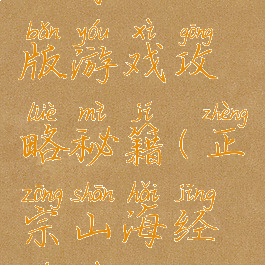 bǎn yóu xì gōng
版游戏攻
lüè mì jí zhèng
略秘籍(正
zōng shān hǎi jīng
宗山海经